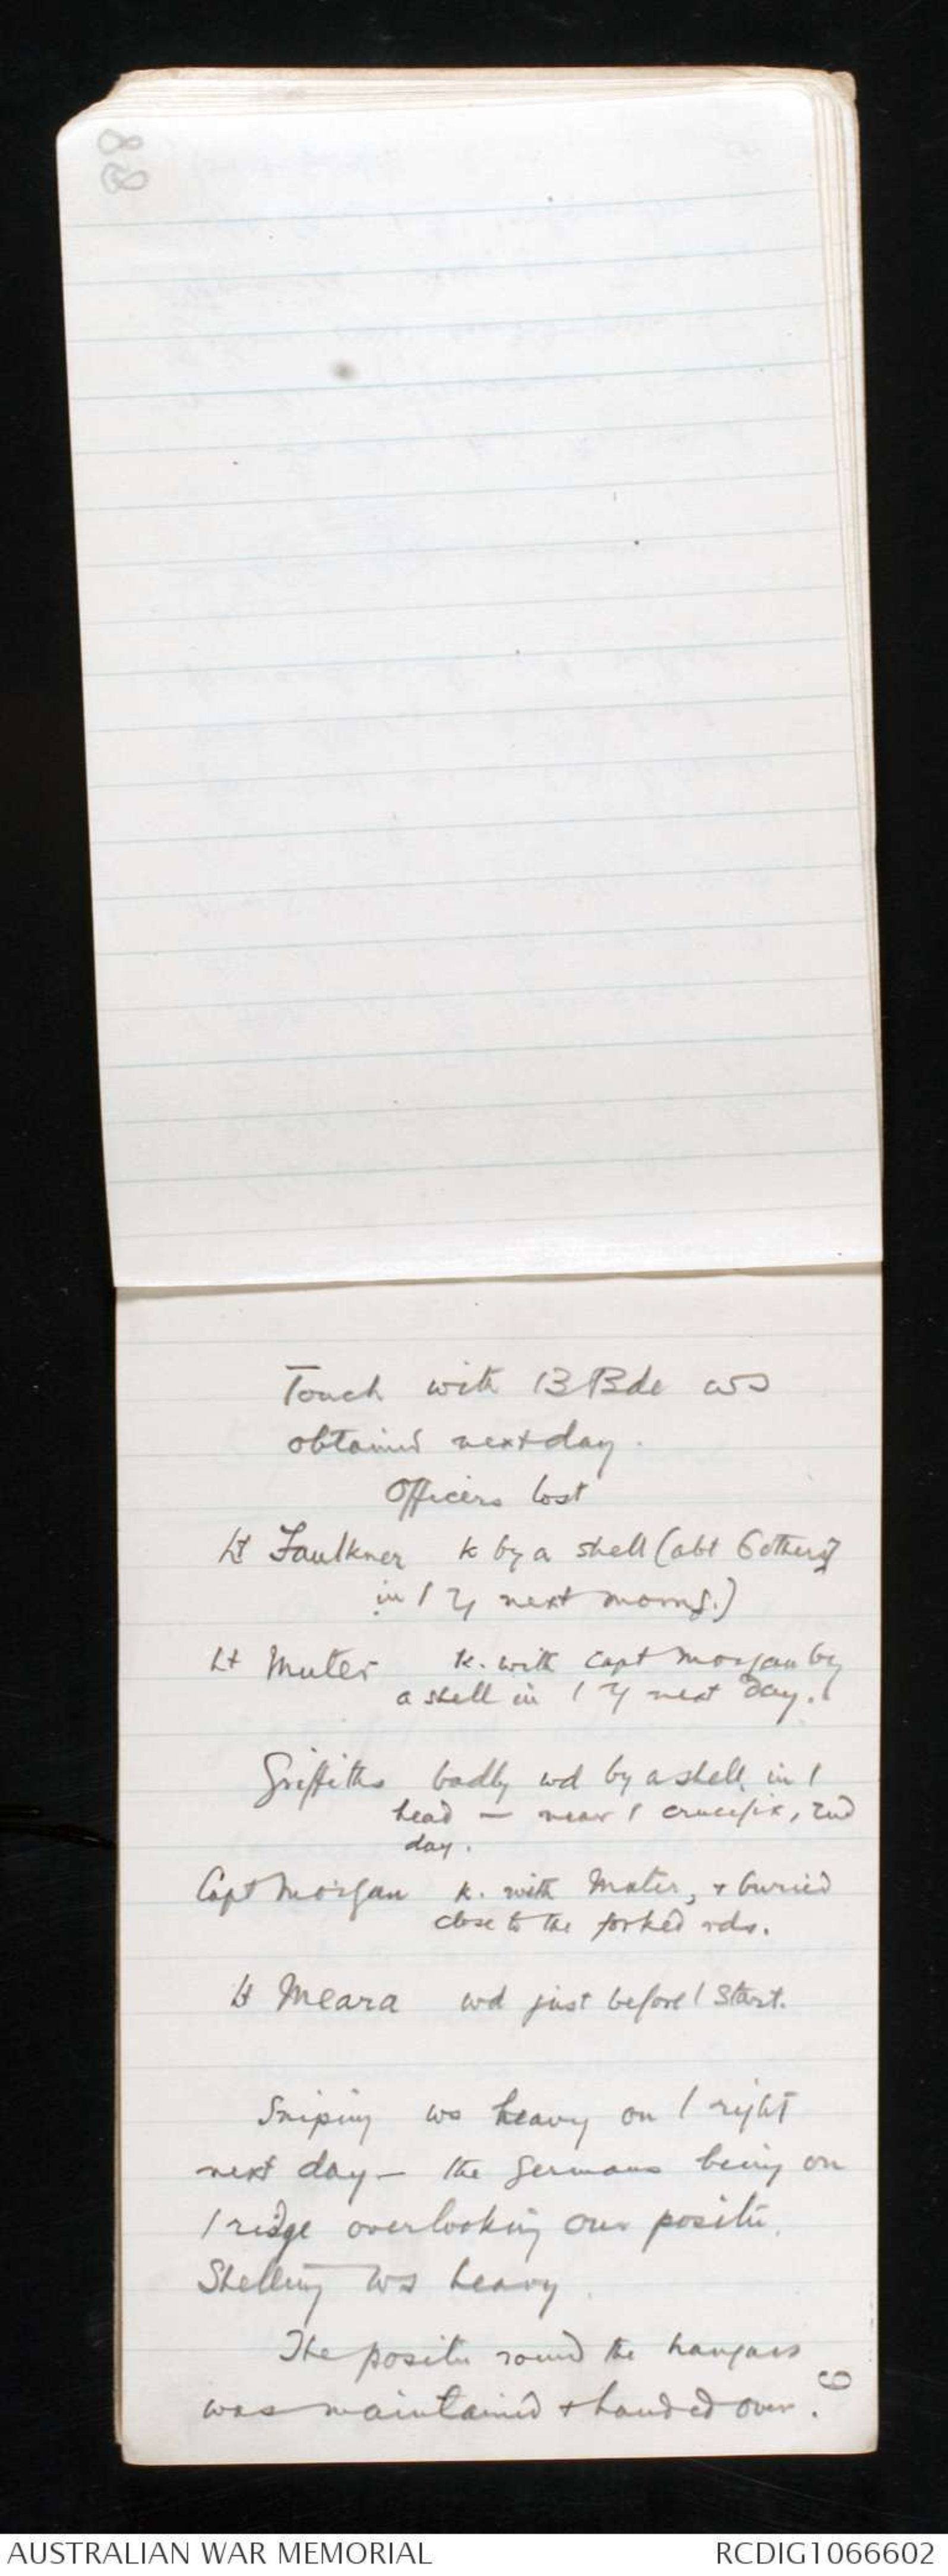 88
Touch with 13 Bde ws
obtained next day.
Officers lost
Lt Faulkner k by a shell (abt 6 others
in / next morng.)
Lt Muter k. with Capt Morgan by
a shell in / next day.
Griffiths badly wd by a shell in /
head - near / crucifix, 2nd
day.
Capt Morgan k. with Muter, + buried
close to the forked rds.
Lt Meara wd just before / start.
Sniping ws heavy on / right
next day - the Germans being on
/ ridge overlooking our positn.
Shelling ws heavy.
The positn round the hangars
was maintained + handed over.
6
AUSTRALIAN WAR MEMORIAL
RCDIG1066602